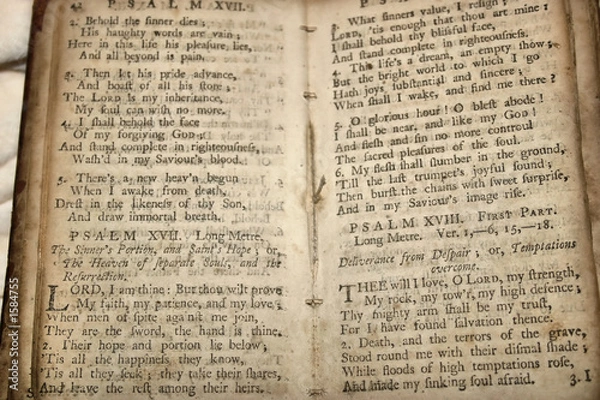 42 PSALM XVII.
2. Behold the sinner dies ;
His haughty words are vain ;
Here in this life his pleasure lies,
And all beyond is pain.
3. Then let his pride advance,
And boast of all his store ;
The LORD is my inheritance,
My soul can wish no more.
4. I shall behold the face
Of my forgiving GOD ;
And stand complete in righteousness,
Wash'd in my Saviour's blood.
5. There's a new heav'n begun
When I awake from death,
Drest in the likeness of thy Son,
And draw immortal breath.
PSALM XVII. Long Metre.
The Sinner's Portion, and Saint's Hope ; or,
The Heaven of separate Souls, and the
Resurrection.
LORD, I am thine : But thou wilt prove
My faith, my patience, and my love ;
When men of spite against me join,
They are the sword, the hand is thine.
2. Their hope and portion lie below ;
'Tis all the happiness they know,
'Tis all they seek ; they take their shares,
And leave the rest among their heirs.
PSALM XVIII.
3. What sinners value, I resign ;
LORD, 'tis enough that thou art mine :
I shall behold thy blissful face,
And stand complete in righteousness.
4. This life's a dream, an empty show ;
But the bright world to which I go
Hath joys, substantial and sincere ;
When shall I wake, and find me there ?
5. O glorious hour ! O blest abode !
I shall be near, and like my GOD !
And flesh and sin no more controul
The sacred pleasures of the soul.
6. My flesh shall slumber in the ground,
'Till the last trumpet's joyful sound ;
Then burst the chains with sweet surprise,
And in my Saviour's image rise.
PSALM XVIII. FIRST PART.
Long Metre. Ver. 1,—6, 15,—18.
Deliverance from Despair ; or, Temptations
overcome.
THEE will I love, O LORD, my strength,
My rock, my tow'r, my high defence ;
Thy mighty arm shall be my trust,
For I have found salvation thence.
2. Death, and the terrors of the grave,
Stood round me with their dismal shade ;
While floods of high temptations rose,
And made my sinking soul afraid.
3. I
Adobe Stock | #1584755